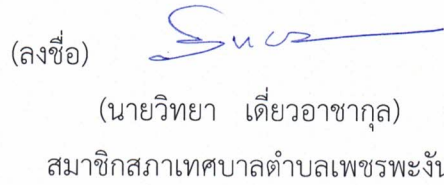 (ลงชื่อ)
(นายวิทยา เดี่ยวอาชากุล)
สมาชิกสภาเทศบาลตำบลเพชรพะงัน